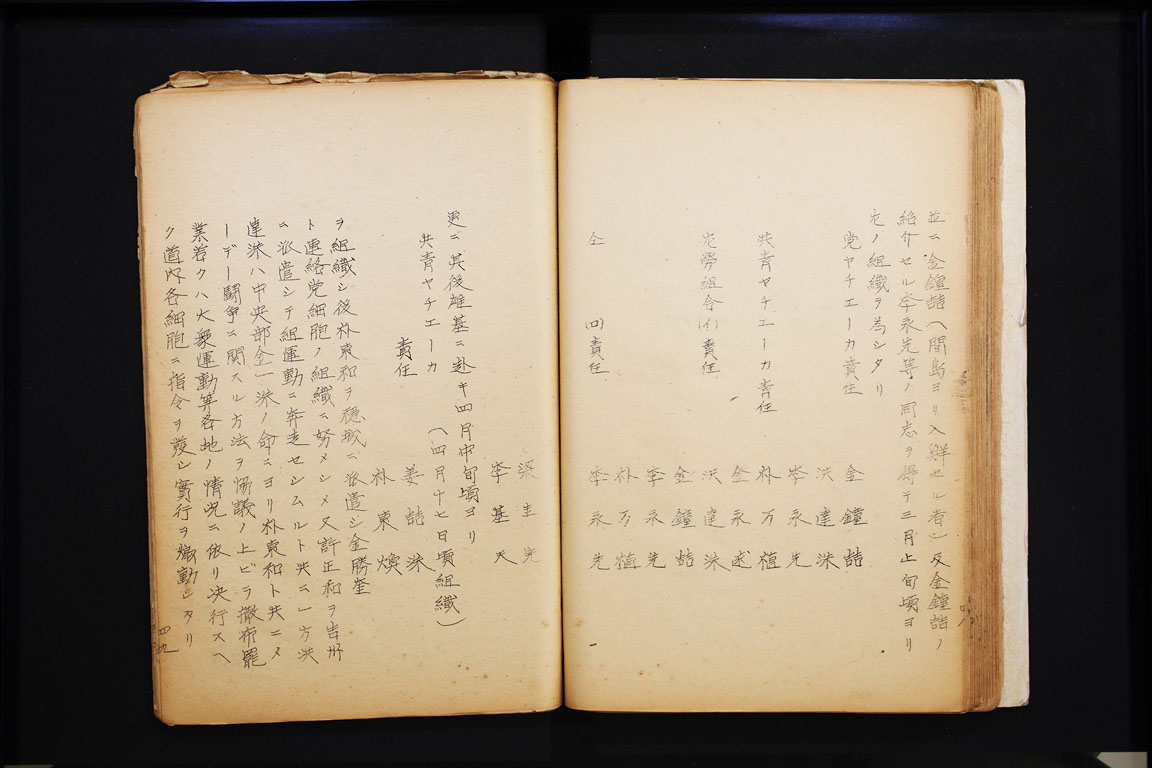 並ニ金鐘喆(間島ヨリ入鮮セル者)及金鐘喆ノ
紹介セル李永先等ノ同志ヲ得テ三月上旬頃ヨリ
左ノ組織ヲ為シタリ
党ヤチエーカ責任 金鐘喆
洪達洙
李永先
共青ヤチエーカ責任 朴万植
金永
左労組合(イ)責任 洪達洙
金鐘喆
李永先
朴万植
仝 (ロ)責任 李永先
梁圭
李基天
更ニ其後雄基ニ赴キ四月中旬頃ヨリ
(四月十七日頃組織)
共青ヤチエーカ
責任 姜喆洙
朴東煥
ヲ組織シ後朴東和ヲ穏城ニ派遣シ金勝奎
ト連絡党細胞ノ組織ニ努メシメ又許正和ヲ吉州
ニ派遣シテ組運動ニ奔走セシムルト共ニ一方洪
達洙ハ中央部金一洙ノ命ニヨリ朴東和ト共ニメ
ーデー闘争ニ関スル方法ヲ協議ノ上ビラ撒布罷
業若クハ大衆運動等各地ノ情況ニ依リ决行スヘ
ク道内各細胞ニ指令ヲ発シ実行ヲ煽動シタリ
四九